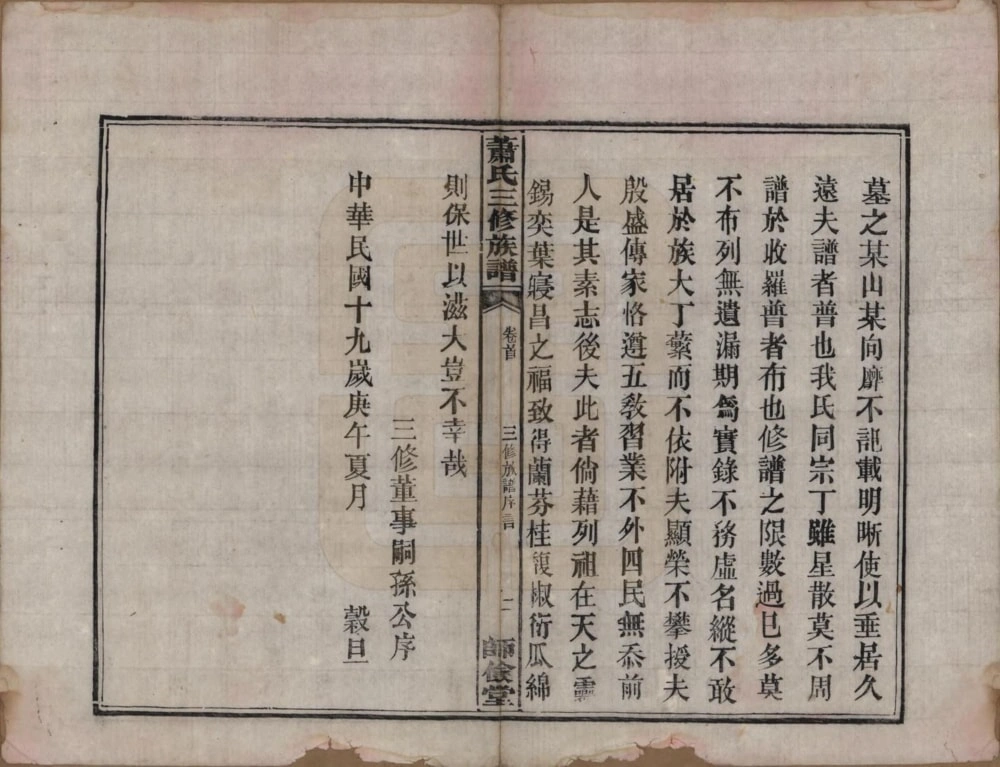 墓之某山某向靡不記載明晰使以垂居久
遠夫譜者普也我氏同宗丁雖星散莫不周
譜於收羅普者布也修譜之限數過已多莫
不布列無遺漏期為實錄不務虛名縱不敢
居於族大丁蘩而不依附夫顯榮不攀援夫
殷盛傳家恪遵五敎習業不外四民無忝前
人是其素志後夫此者倘藉列祖在天之靈
錫奕葉寖昌之福致得蘭芬桂馥椒衍瓜綿
蕭氏三修族譜
卷首
三修族譜序言
二
師儉堂
則保世以滋大豈不幸哉
三修董事嗣孫公序
中華民國十九歲庚午夏月
穀旦